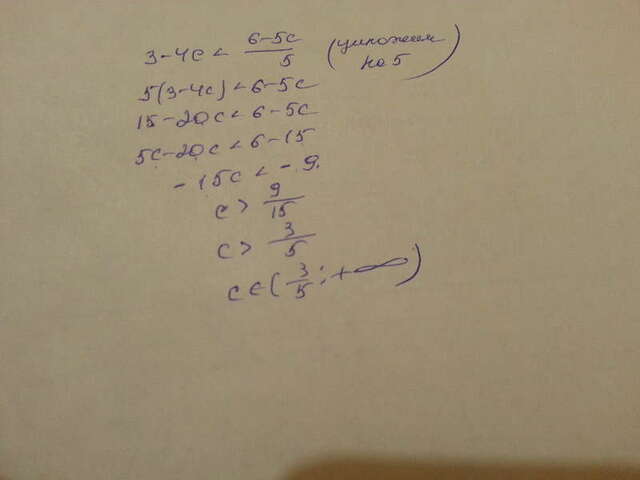 3-4c < 6-5c/5 (умножим на 5)
5(3-4c) < 6-5c
15-20c < 6-5c
5c-20c < 6-15
-15c < -9.
c > 9/15
c > 3/5
c ∈ (3/5; +∞)